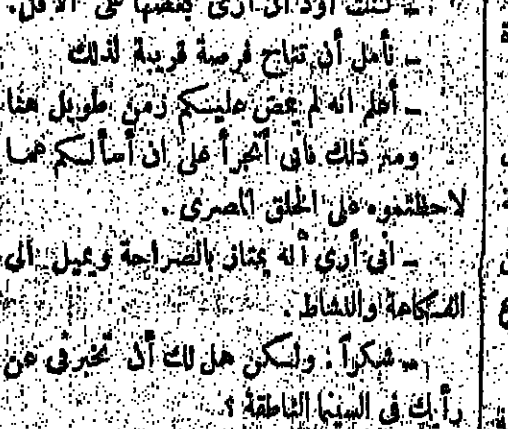 ـ كنت أود أن أرى بعضها على الأقل.
ـ نأمل أن تتاح فرصة قريبة لذلك
ـ أعلم انه لم يمض عليكم زمن طويل هنا
ومع ذلك فأنى أتجرأ على ان أسألكم عما
لاحظتموه على الخلق المصرى .
ـ انى أرى أنه يمتاز بالصراحة ويميل الى
الفكاهة والنشاط .
ـ شكراً : ولكن هل لك أن تخبرنى عن
رأيك فى السينما الناطقة ؟